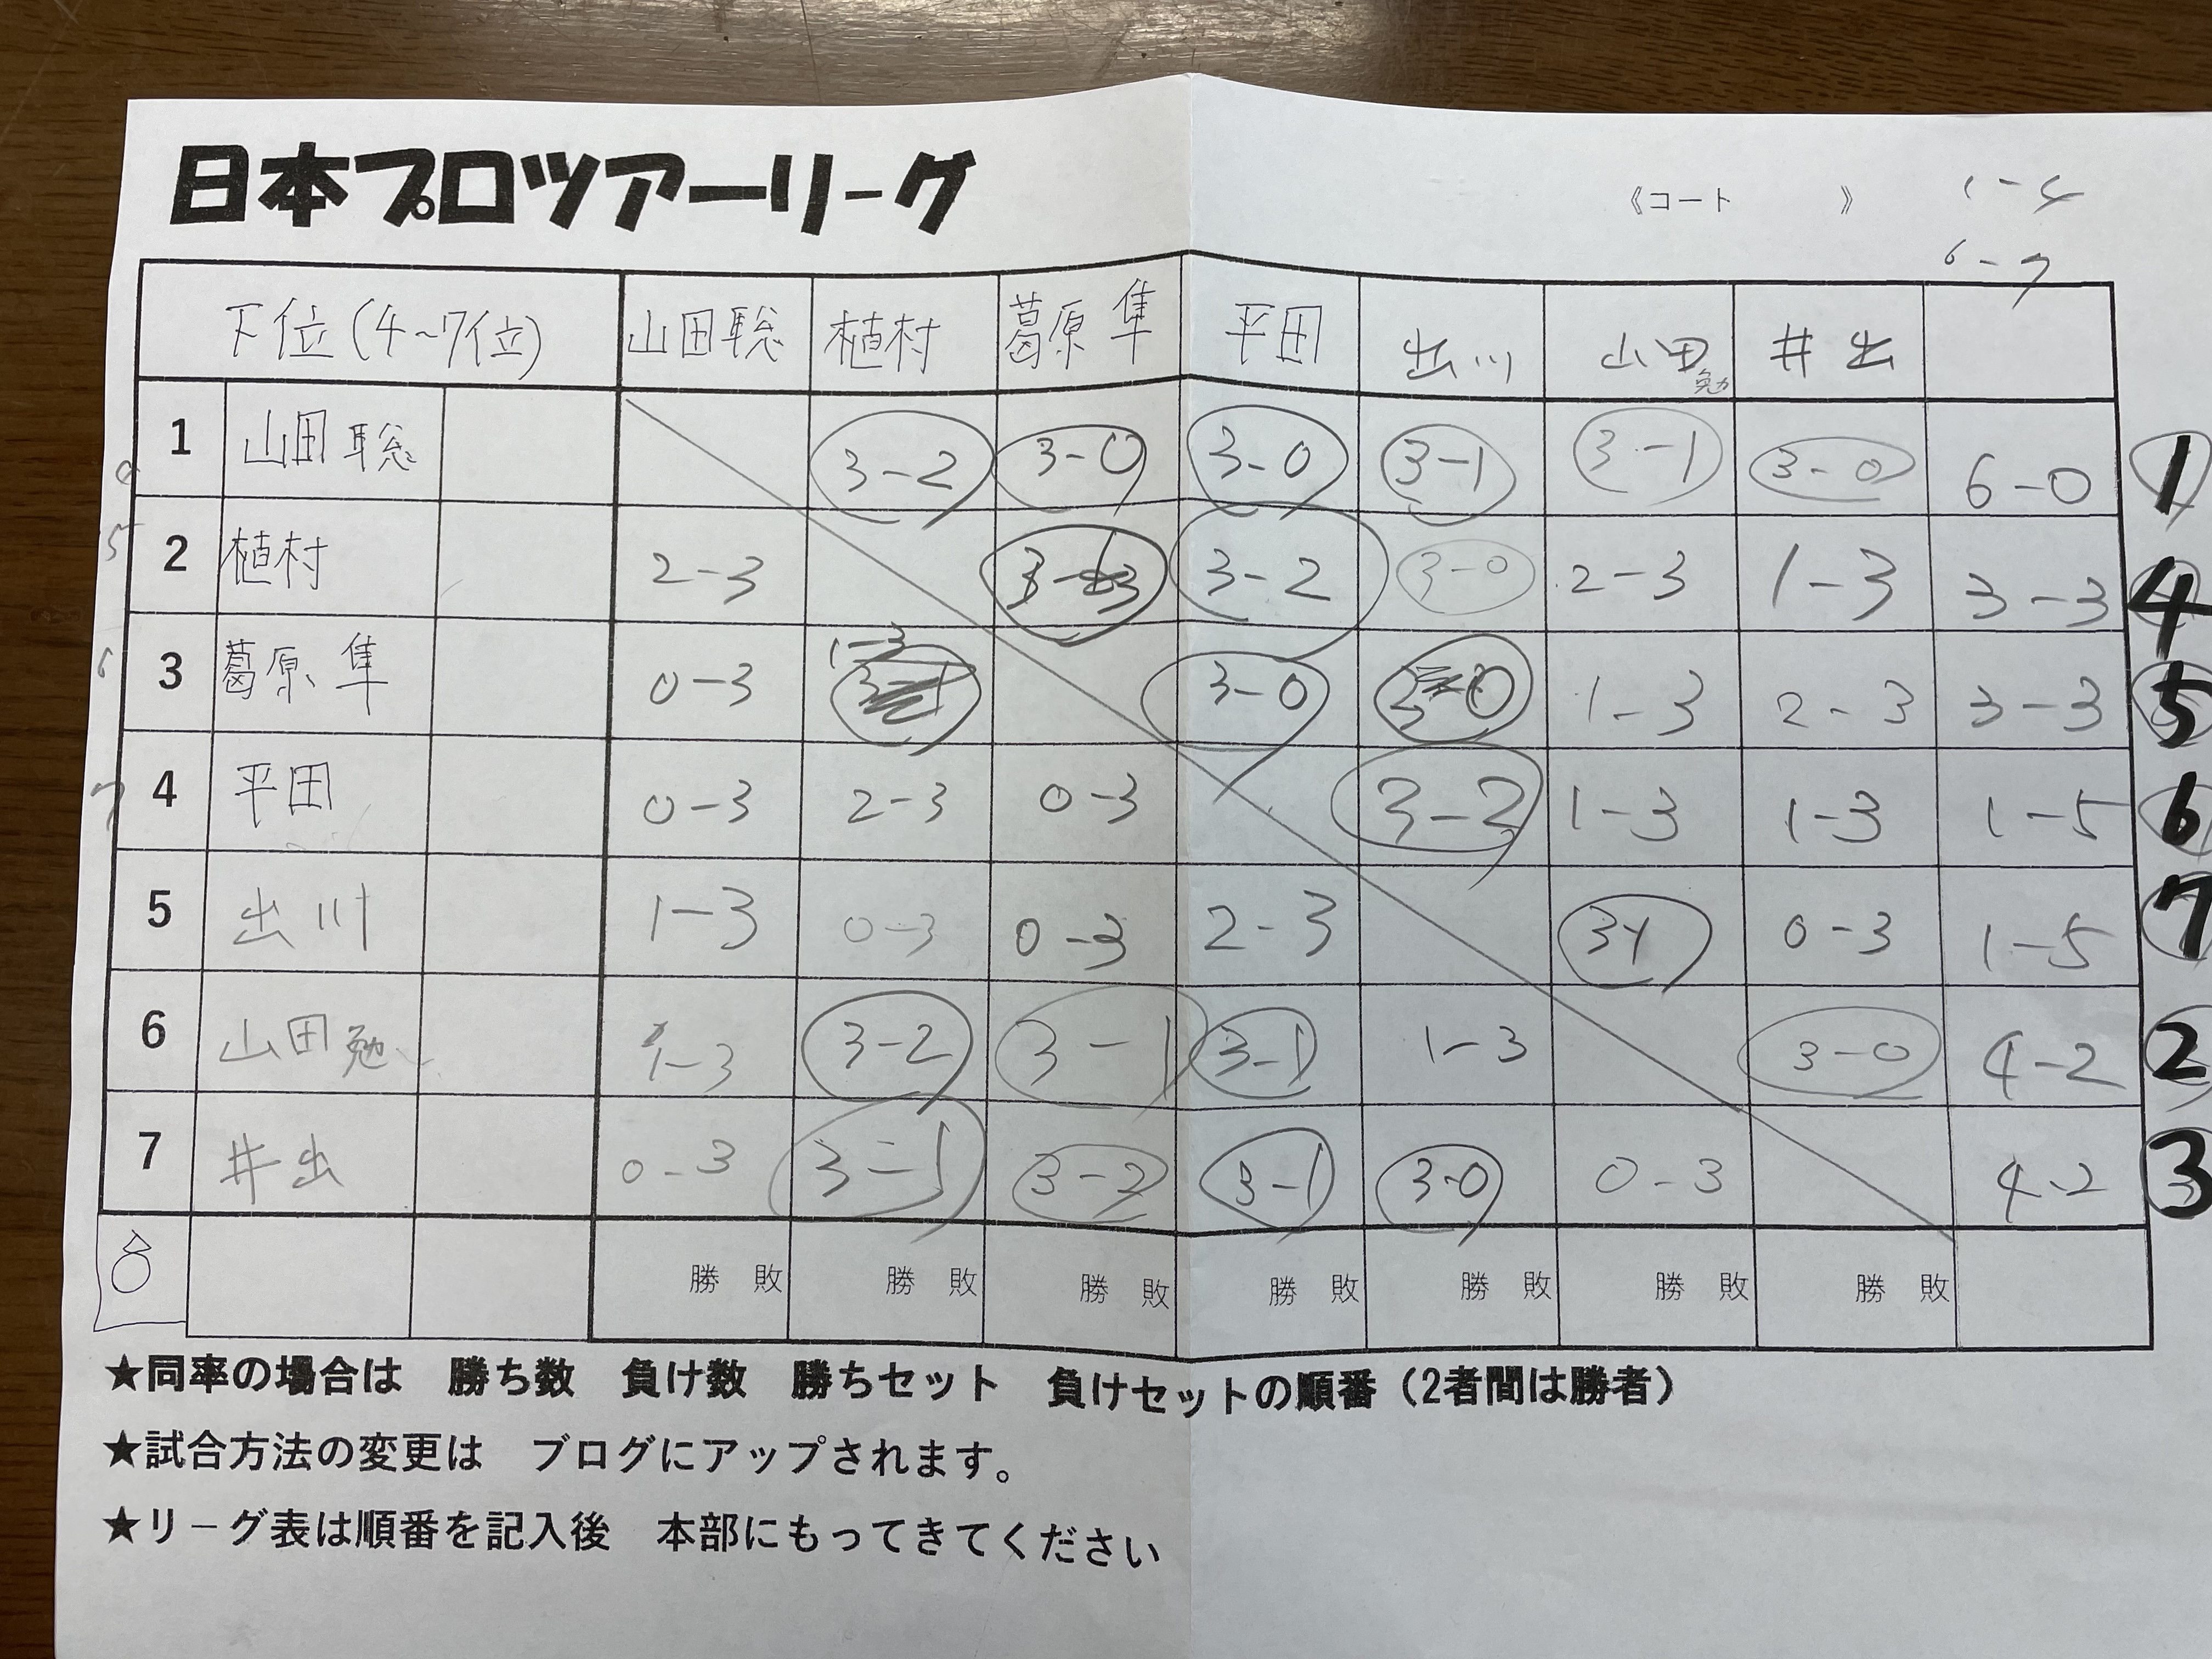 日本プロツアーリーグ
《コート　　　》
6-7
下位(4~7位) 山田聡 植村 葛原 隼 平田 出川 山田勉 井出
1 山田 聡 3-2 3-0 3-0 3-1 3-1 3-0 6-0 1
5 2 植村 2-3 3-2 3-0 2-3 1-3 3-3 4
6 3 葛原 隼 0-3 1-3 3-0 3-0 1-3 2-3 3-3 5
7 4 平田 0-3 2-3 0-3 3-2 1-3 1-3 1-5 6
5 出川 1-3 0-3 0-3 2-3 3-1 0-3 1-5 7
6 山田 勉 1-3 3-2 3-1 3-1 1-3 3-0 4-2 2
7 井出 0-3 3-1 3-2 3-1 3-0 0-3 4-2 3
8 勝 敗 勝 敗 勝 敗 勝 敗 勝 敗 勝 敗 勝 敗
★同率の場合は　勝ち数　負け数　勝ちセット　負けセットの順番（2者間は勝者）
★試合方法の変更は　ブログにアップされます。
★リーグ表は順番を記入後　本部にもってきてください